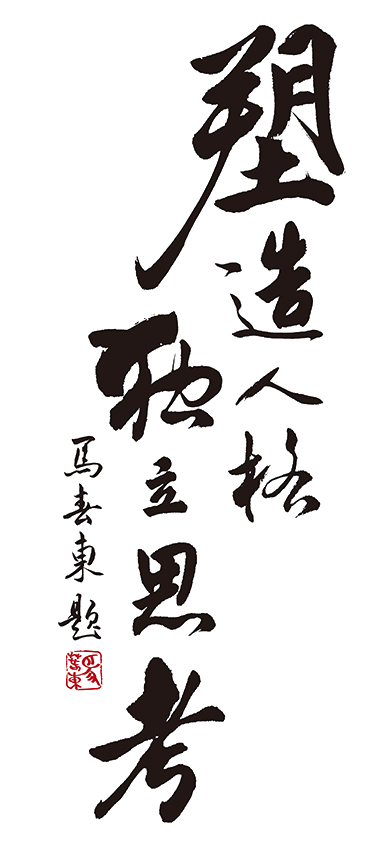 塑造人格
独立思考
馬春東題